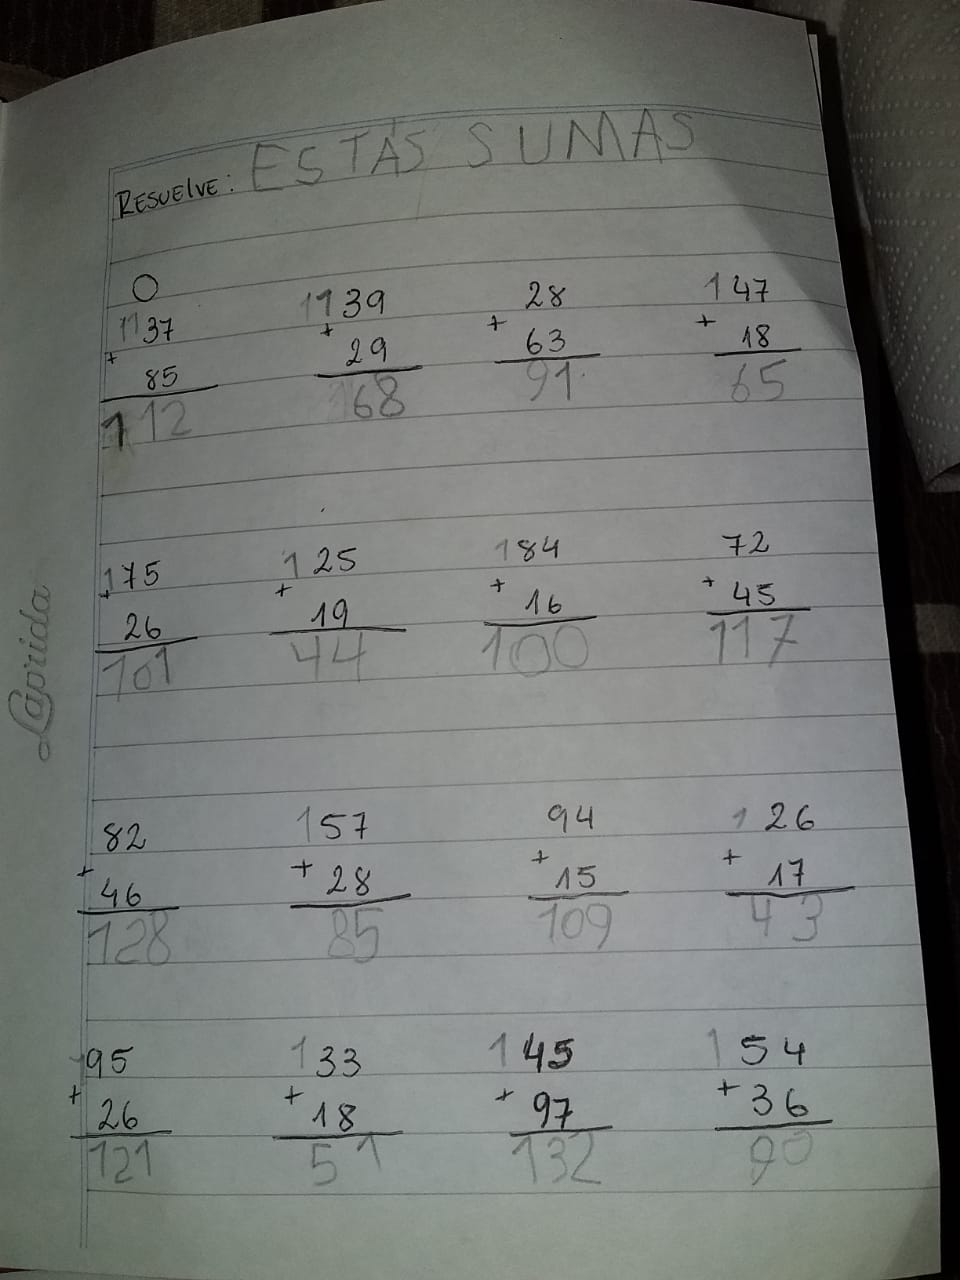 RESUELVE: ESTAS SUMAS
O
1137 1139 28 147
+ + + +
85 29 63 18
112 168 91 65
175 125 184 72
+ + + +
26 19 16 45
101 44 100 117
82 157 94 126
+ + + +
46 28 15 17
128 85 109 43
195 133 145 154
+ + + +
26 18 97 36
121 51 132 90
Laprida